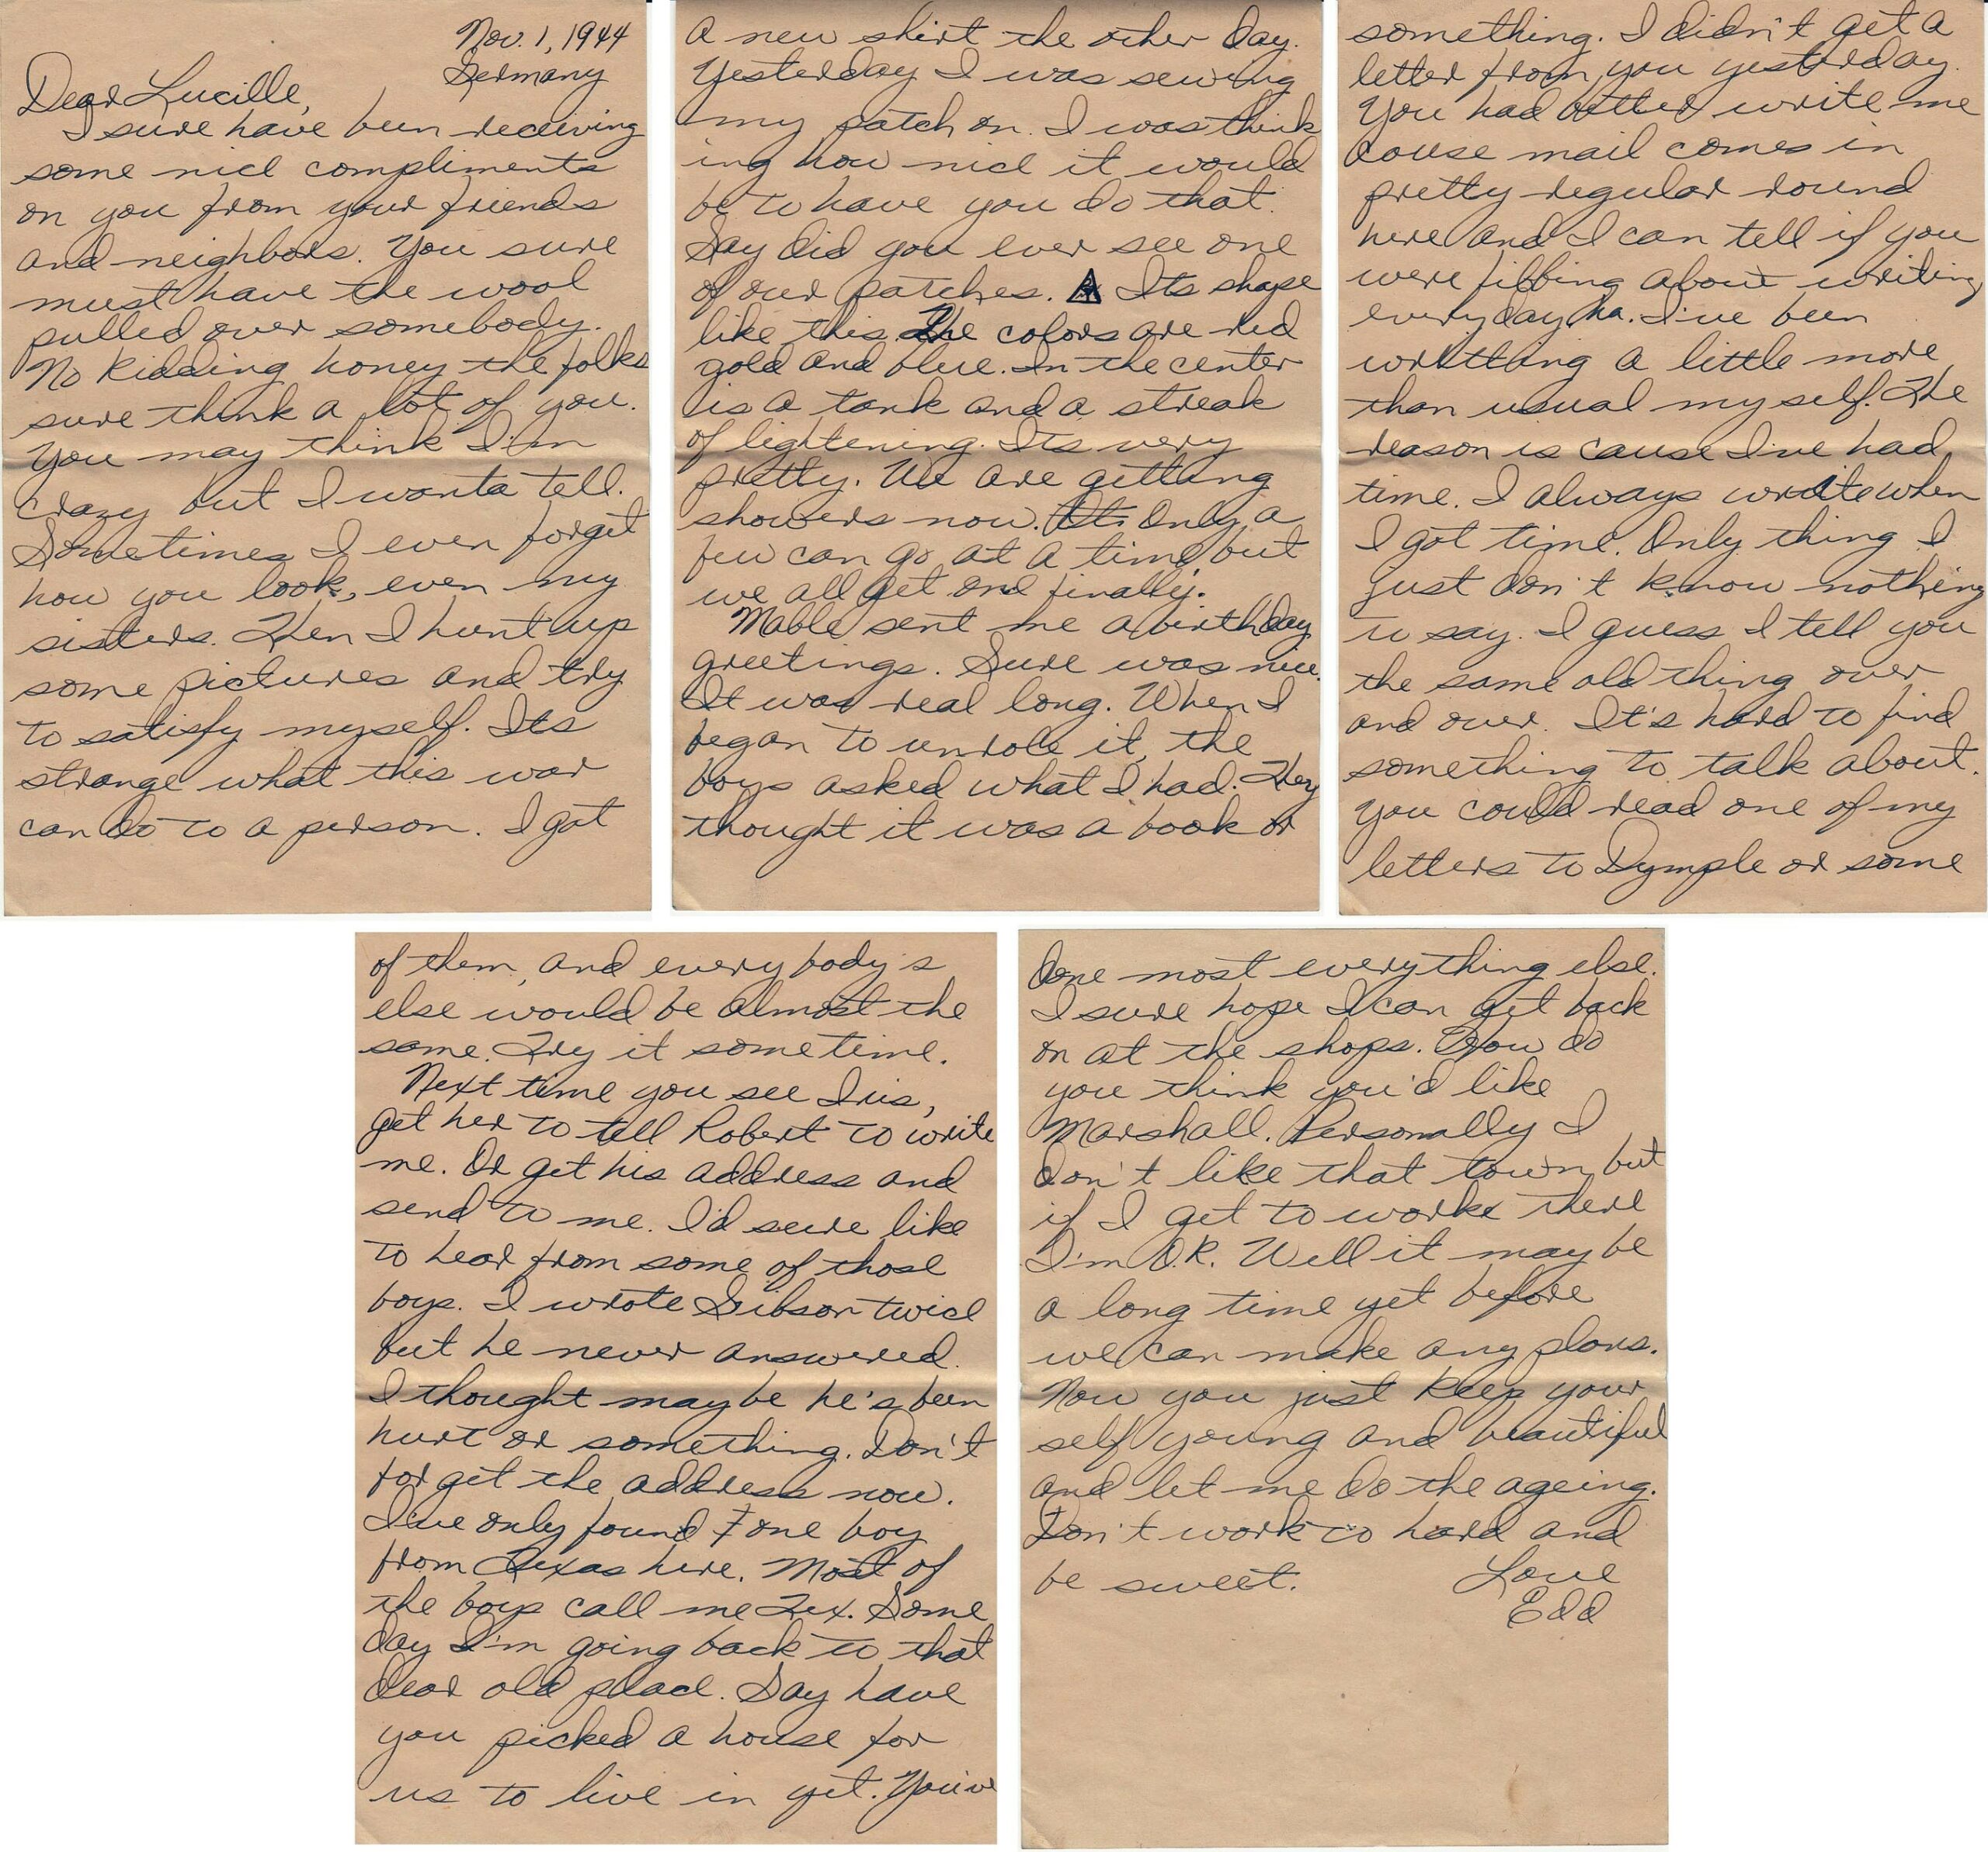 Nov. 1, 1944
Germany
Dear Lucille,
I sure have been receiving
some nice compliments
on you from your friends
and neighbors. You sure
must have the wool
pulled over somebody.
No kidding honey the folks
sure think a lot of you.
You may think I'm
crazy but I wanta tell.
Sometimes I even forget
how you look, even my
sisters. Then I hunt up
some pictures and try
to satisfy myself. Its
strange what this war
can do to a person. I got
a new shirt the other day.
Yesterday I was sewing
my patch on. I was think
ing how nice it would
be to have you do that.
Say did you ever see one
of our patches. Its shape
like this The colors are red
gold and blue. In the center
is a tank and a streak
of lightening. Its very
pretty. We are getting
showers now. Only a
few can go at a time, but
we all get one finally.
Mable sent me a birthday
greetings. Sure was nice.
It was real long. When I
began to unrole it, the
boys asked what I had. They
thought it was a book or
something. I didn't get a
letter from you yesterday.
You had better write me
cause mail comes in
pretty regular round
here and I can tell if you
were fibbing about writing
everyday, ha. I've been
writting a little more
than usual myself. The
reason is cause I've had
time. I always write when
I got time. Only thing I
just don't know nothing
to say. I guess I tell you
the same old thing over
and over. It's hard to find
something to talk about.
You could read one of my
letters to Dymple or some
of them, and every body's
else would be almost the
same. Try it sometime.
Next time you see Iris,
get her to tell Robert to write
me. Or get his address and
send to me. I'd sure like
to hear from some of those
boys. I wrote Gibson twice
but he never answered.
I thought maybe he's been
hurt or something. Don't
forget the address now.
I've only found one boy
from Texas here. Most of
the boys call me Tex. Some
day I'm going back to that
dear old place. Say have
you picked a house for
us to live in yet. You've
done most everything else.
I sure hope I can get back
on at the shops. How do
you think you'd like
Marshall. Personally I
don't like that town, but
if I get to work there
I'm O.K. Well it may be
a long time yet before
we can make any plans.
Now you just keep your
self young and beautiful
and let me do the ageing.
Don't work to hard and
be sweet. Love
Edd